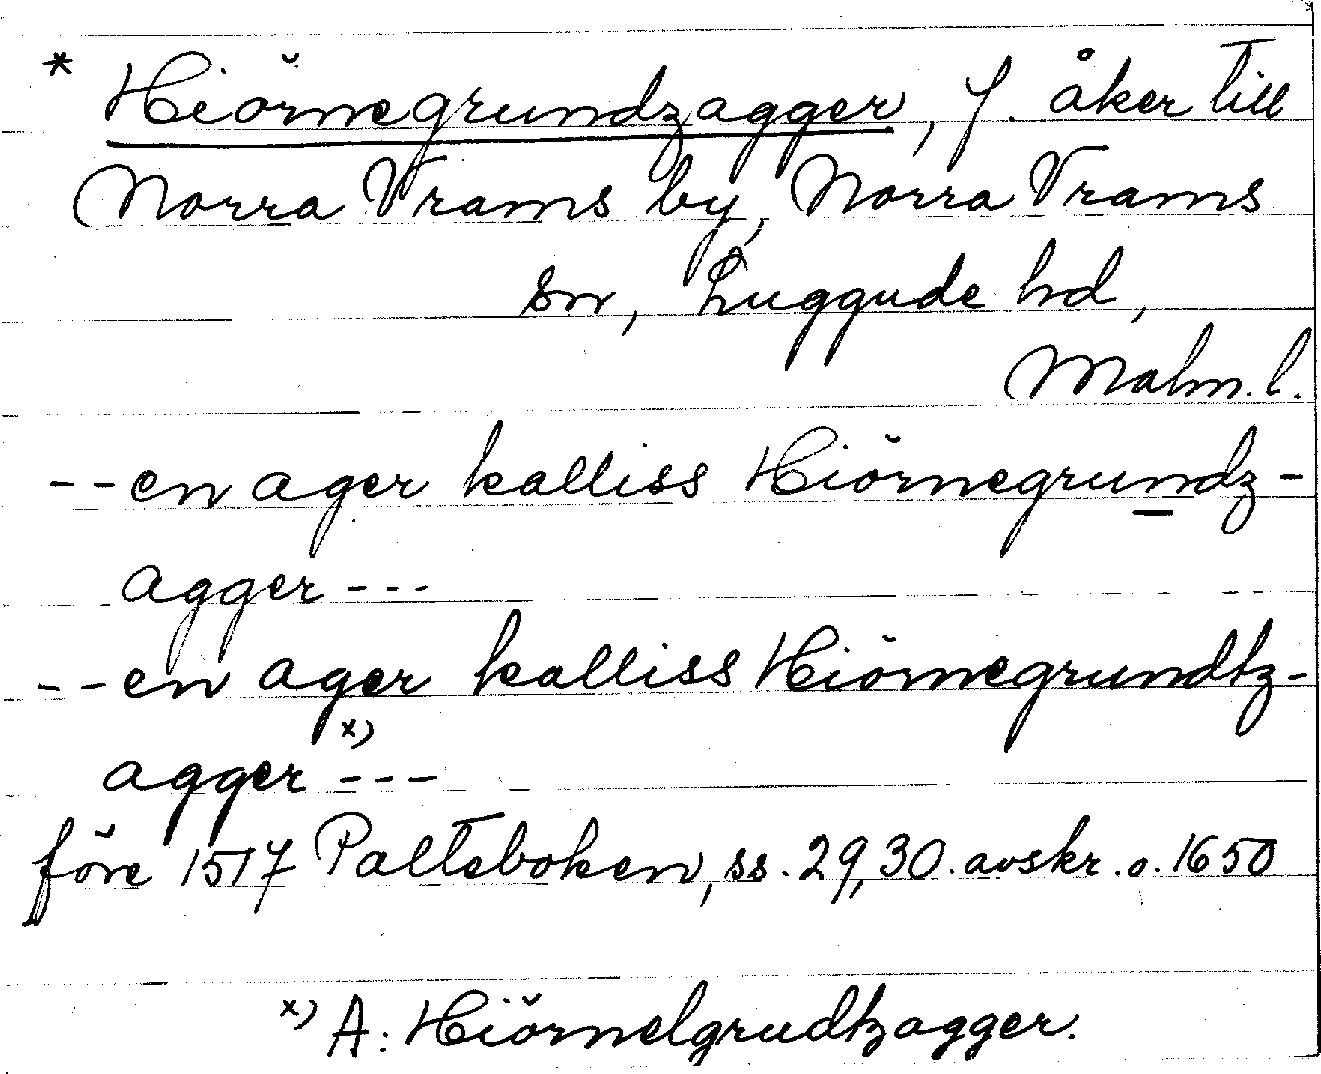 * Hiörnegrundzagger, f. åker till
Norra Vrams by, Norra Vrams
sn, Luggude hd,
Malm. l.
--en ager kalliss Hiörnegrundz-
agger ---
--en ager kalliss Hiörnegrundtz-
agger x) ---
före 1517 Palteboken, ss. 29, 30. avskr. o. 1650
x) A: Hiörnelgrudtzagger.